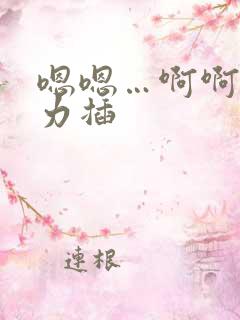 嗯嗯…啊啊
力插
連根